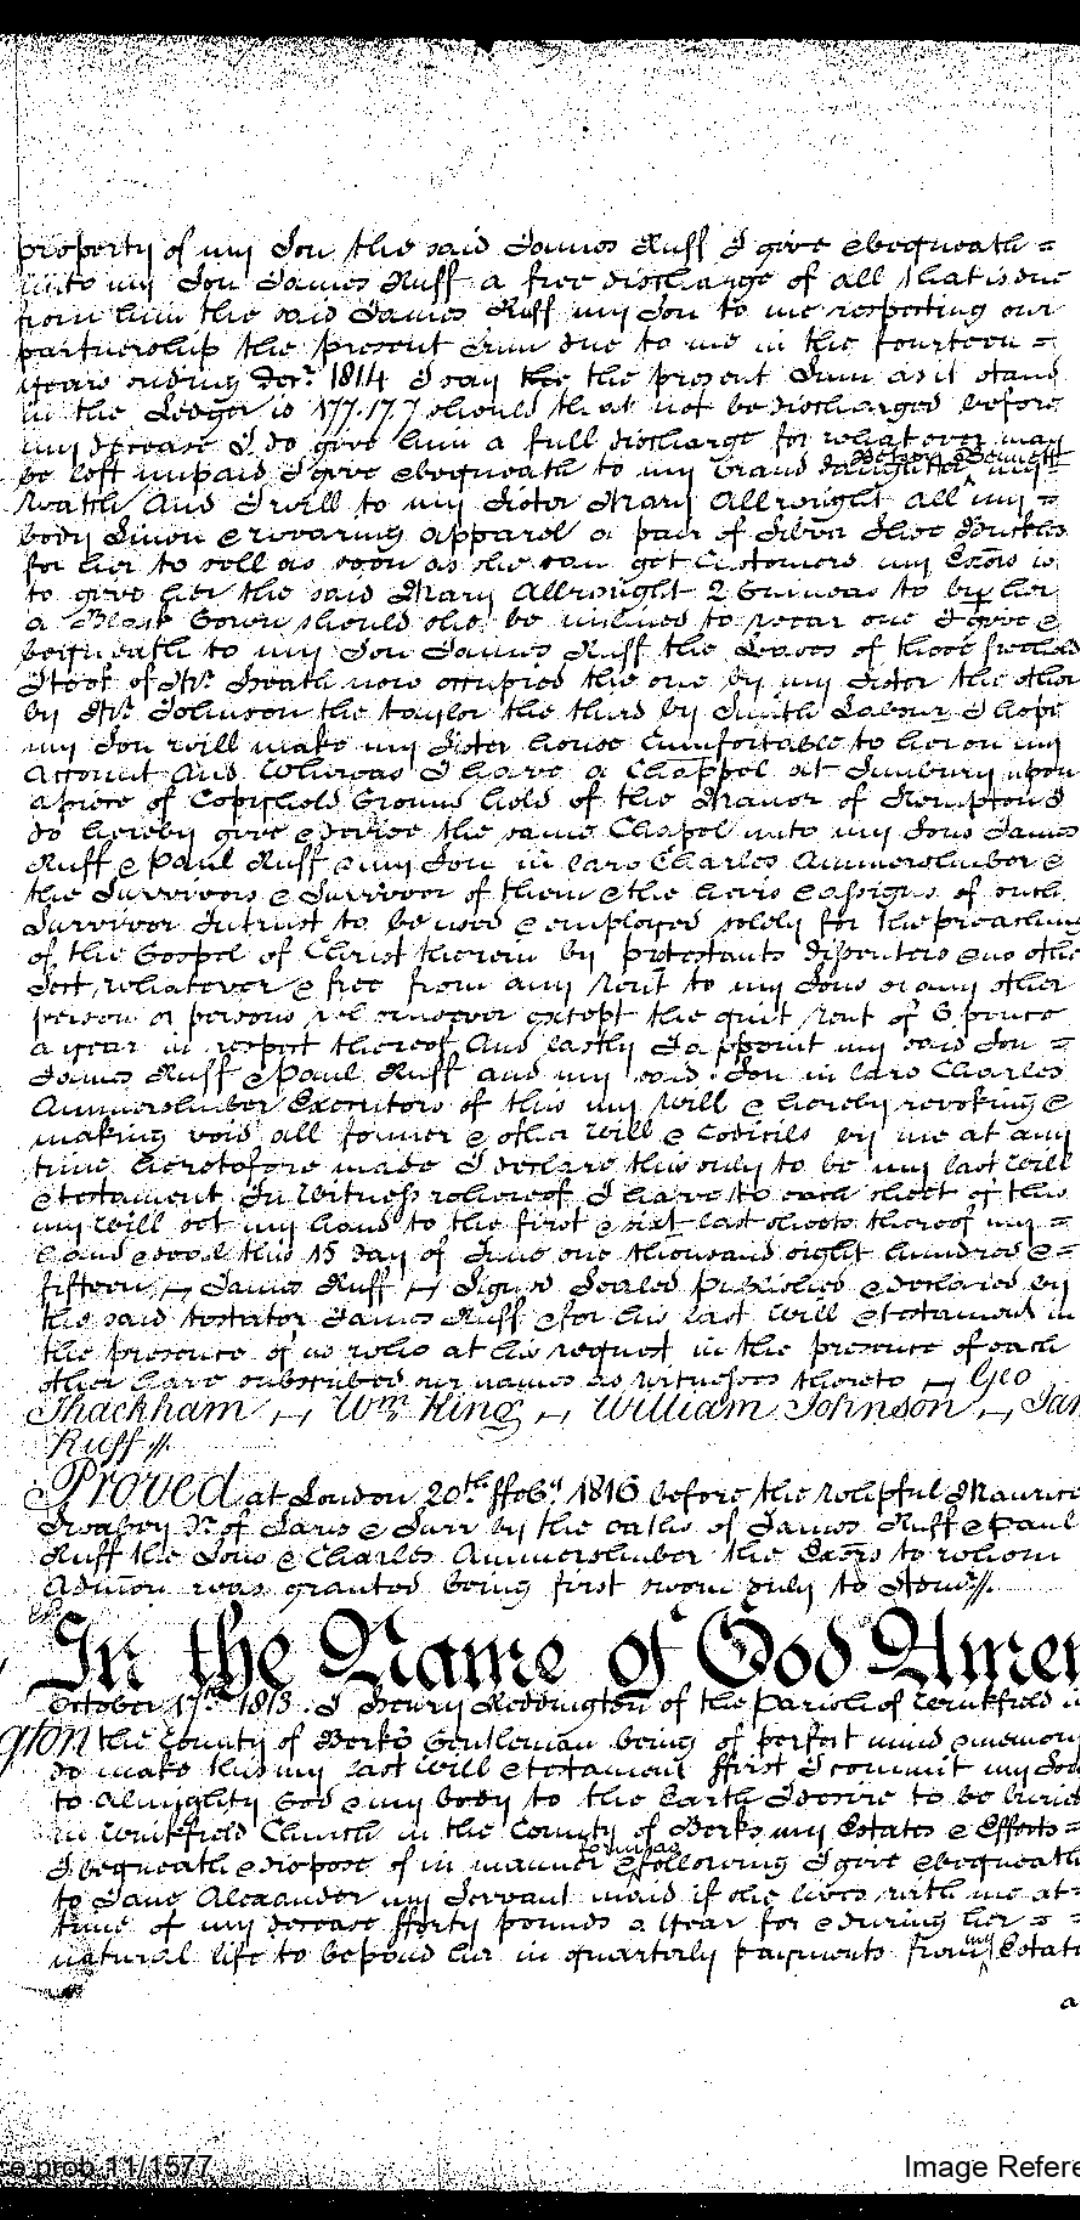 property of my Son the said James Ruff I give & bequeath =
unto my Son James Ruff a free discharge of all that is due
from him the said James Ruff my Son to me respecting our
partnership the present Sum due to me in the fourteen =
years ending Decr. 1814 I say the the present Sum as it stand
in the Ledger is 177.17.7 should that not be discharged before
my decease I do give him a full discharge for whatever may
be left unpaid I give & bequeath to my Grand daughter Bennett my
Watch And I will to my Sister Mary Allwright all my =
body Linen & wearing apparel a pair of Silver Shoe Buckles
for her to sell as soon as she can get Customers my Exors is
to give her the said Mary Allwright 2 Guineas to buy her
a Black Gown should she be inclined to wear one I give &
bequeath to my Son James Ruff the Leases of those
of Mr. Heath now occupied the one by my Sister the other
by Mr. Johnson the taylor the third by Smith Labour I hope
my Son will make my Sister house Cumfortable to her on my
Account And Whereas I have a Chappel at Sunbury upon
a piece of Copyhold Ground held of the Manor of Kempton I
do hereby give & devise the same Chapel unto my Sons James
Ruff & Paul Ruff & my Son in law Charles Ammerslumber &
the Survivors & Survivor of them & the heirs & assigns of such
Survivor In trust to be used & employed solely for the preaching
of the Gospel of Christ therein by protestants dissenters & no othe
Sect whatever & free from any Rent to my Sons or any other
person or persons whomsoever except the quit rent of 6 pence
a year in respect thereof And lastly I appoint my said Son =
James Ruff & Paul Ruff and my said Son in law Charles
Ammerslumber Executors of this my Will & hereby revoking &
making void all former & other Will & Codicils by me at any
time heretofore made I declare this only to be my last Will
& testament In Witness whereof I have to each sheet of this
my Will set my hand to the first & sixt last sheets thereof my =
& and & seal this 15 day of June one thousand eight hundred & =
fifteen James Ruff Signed Sealed published & declared by
the said testator James Ruff & for his last Will & testament in
the presence of us who at his request in the presence of each
other have subscribed our names as Witnesses thereto Geo
Thackham Wm. King William Johnson Jam
Ruff
Proved at London 20th. ffeby. 1816 before the Worpful Maurice
Swabey Dr. of Laws & Surr by the oaths of James Ruff & Paul
Ruff the Sons & Charles Ammerslumber the Exors to whom
Admon was granted being first sworn duly to Admr.
In the Name of God Amen
October 17th. 1813. I Henry Reddington of the Parish of Winkfield i
gton the County of Berks Gentleman being of perfect mind & memory
do make this my last Will & testament ffirst I commit my Sou
to Almyghty God & my body to the Earth I desire to be buried
in Winkfield Church in the County of Berks my Estates & Effects =
I bequeath & dispose of in manner form as & following I give & bequeath
to Jane Alexander my Servant maid if she lives with me at =
time of my decease fforty pounds a Year for & during her = =
natural life to be paid her in quarterly payments from my Estate
a
ce prob 11/1577
Image Refere